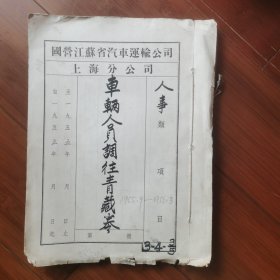 國營江蘇省汽車運輸公司
上海分公司
人事類 項目
車輛人員調往青藏卷
第 號
自一九五五年 月 日起
至一九五五年 月 日止
3-4-